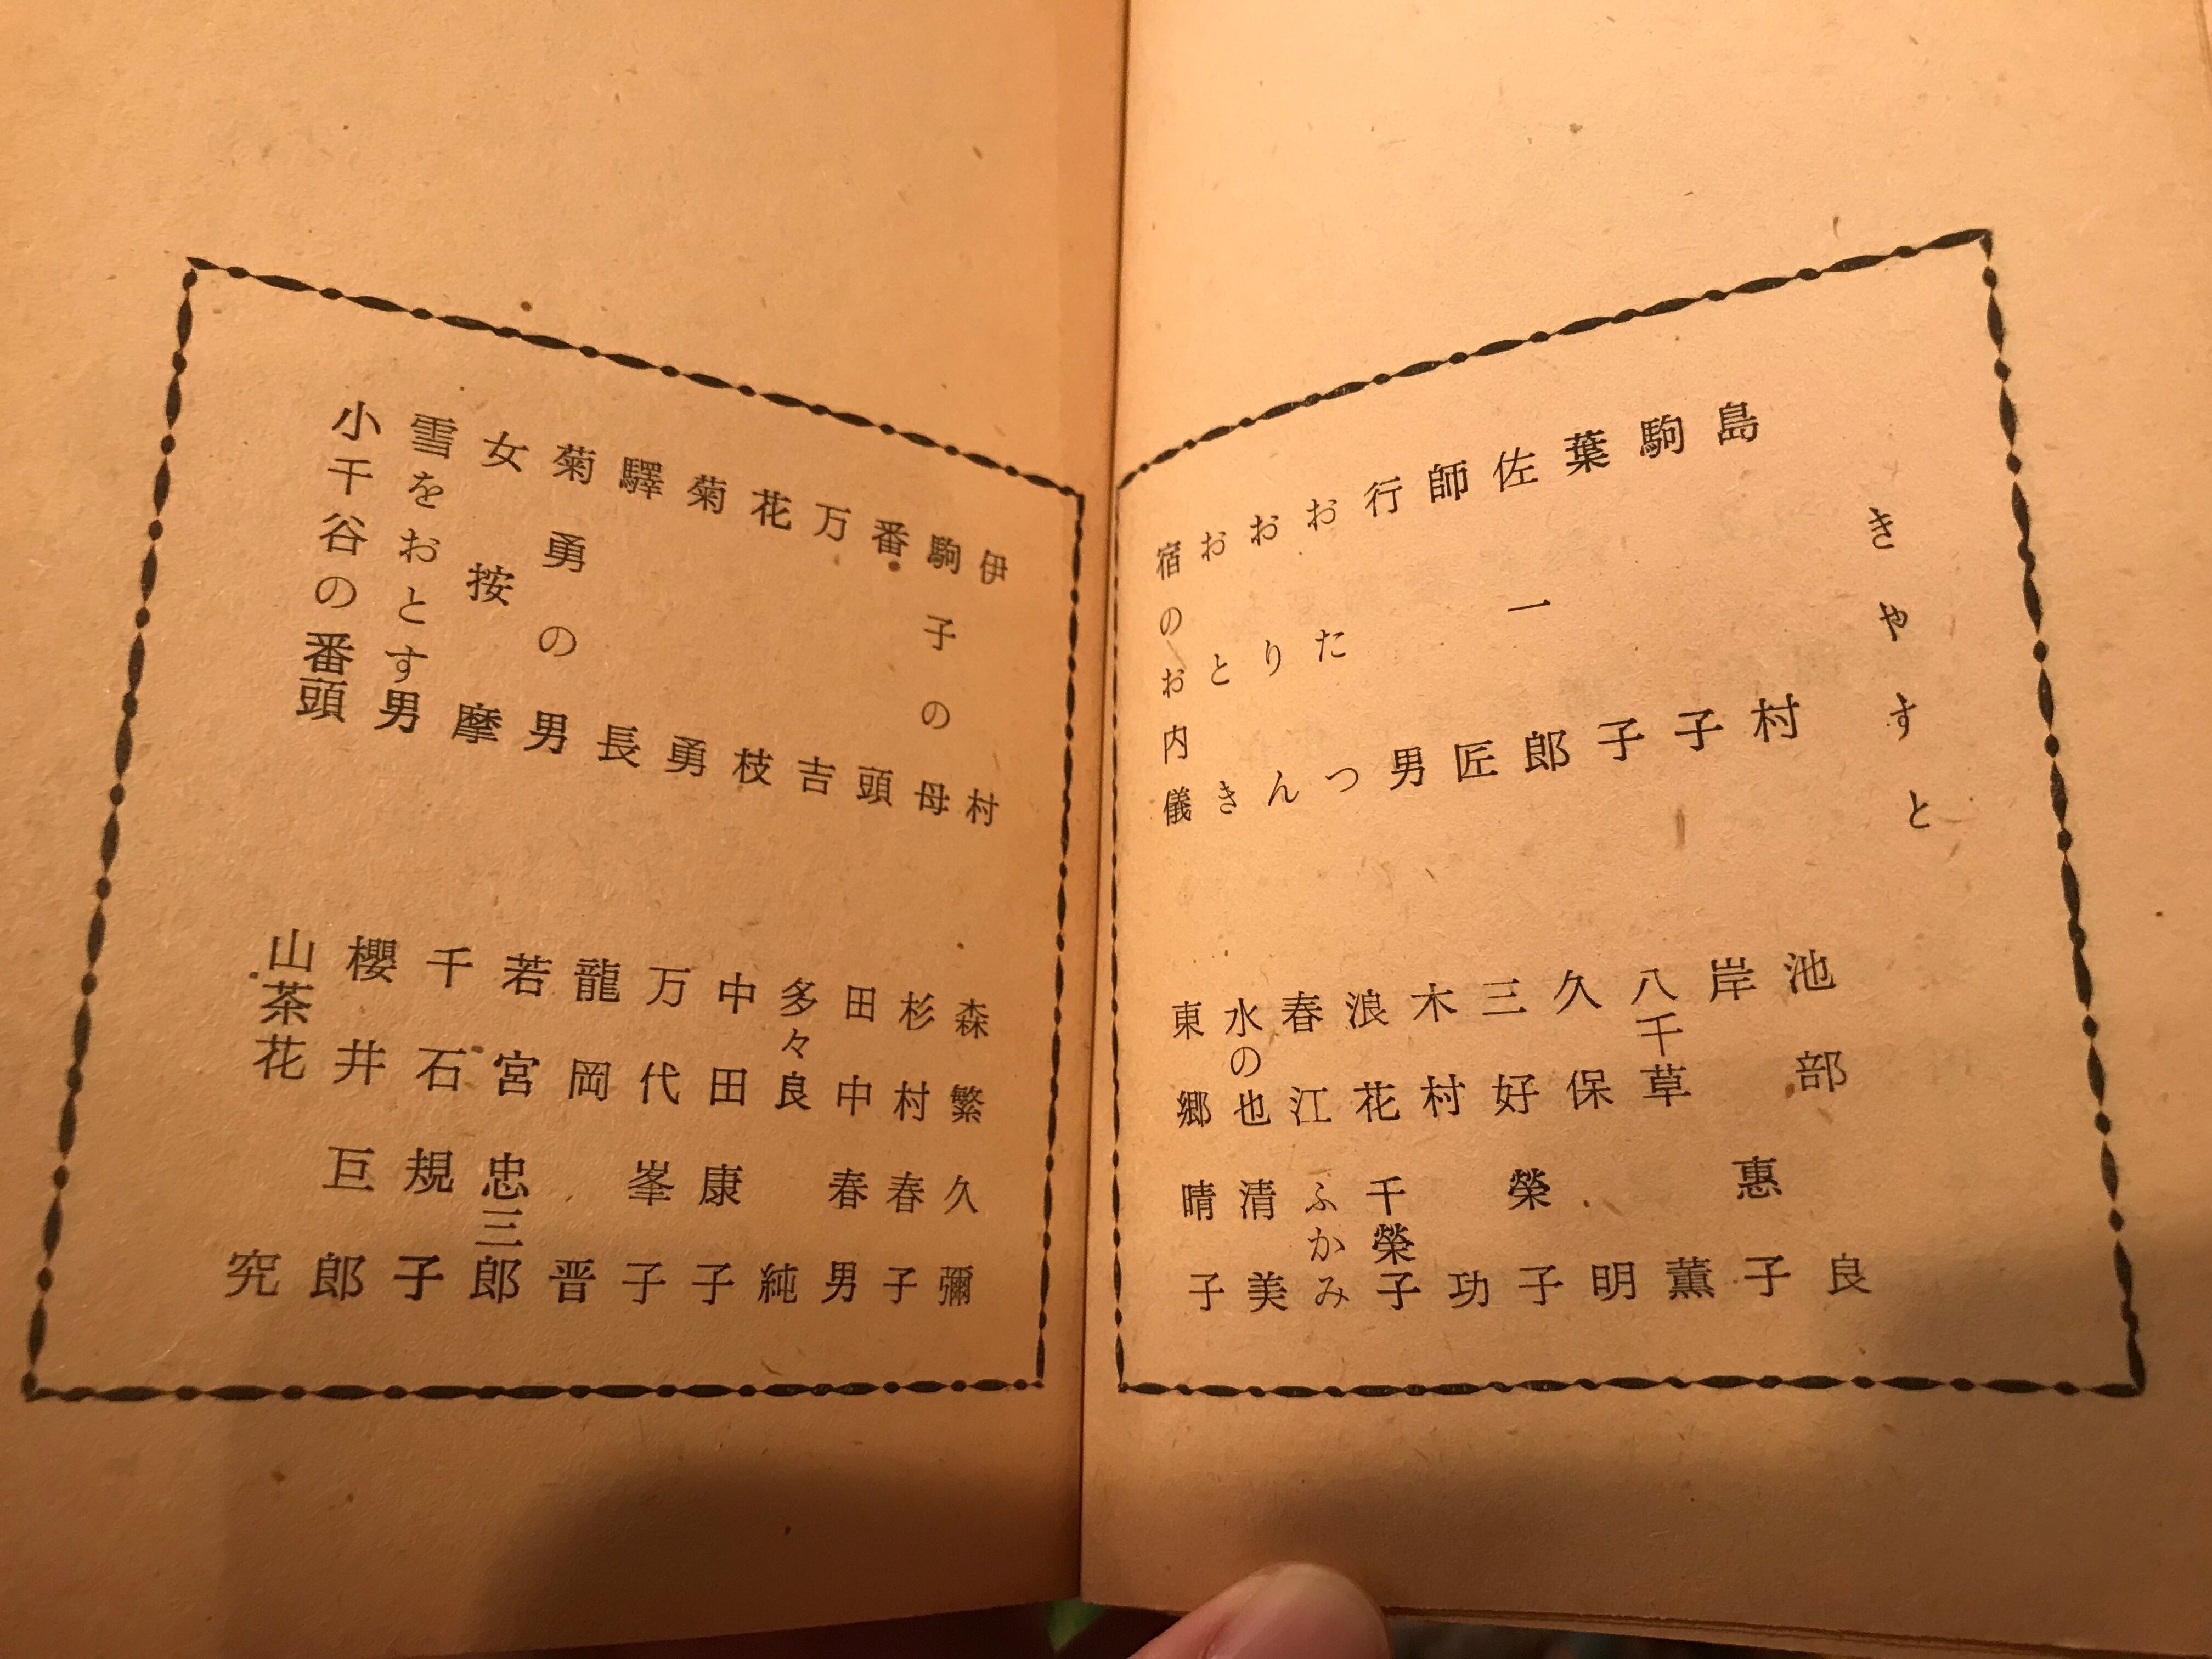 きやすと
島村 池部良
駒子 岸惠子
葉子 八千草薫
佐一郎 久保明
師匠 三好榮子
行男 木村功
おたつ 浪花千榮子
おりん 春江ふかみ
おとき 水の也清美
宿のお内儀 東郷晴子
伊村 森繁久彌
駒子の母 杉村春子
番頭 田中春男
万吉 多々良純
花枝 中田康子
菊勇 万代峯子
驛長 龍岡晋
菊勇の男 若宮忠三郎
女按摩 千石規子
雪をおとす男 櫻井巨郎
小千谷の番頭 山茶花究